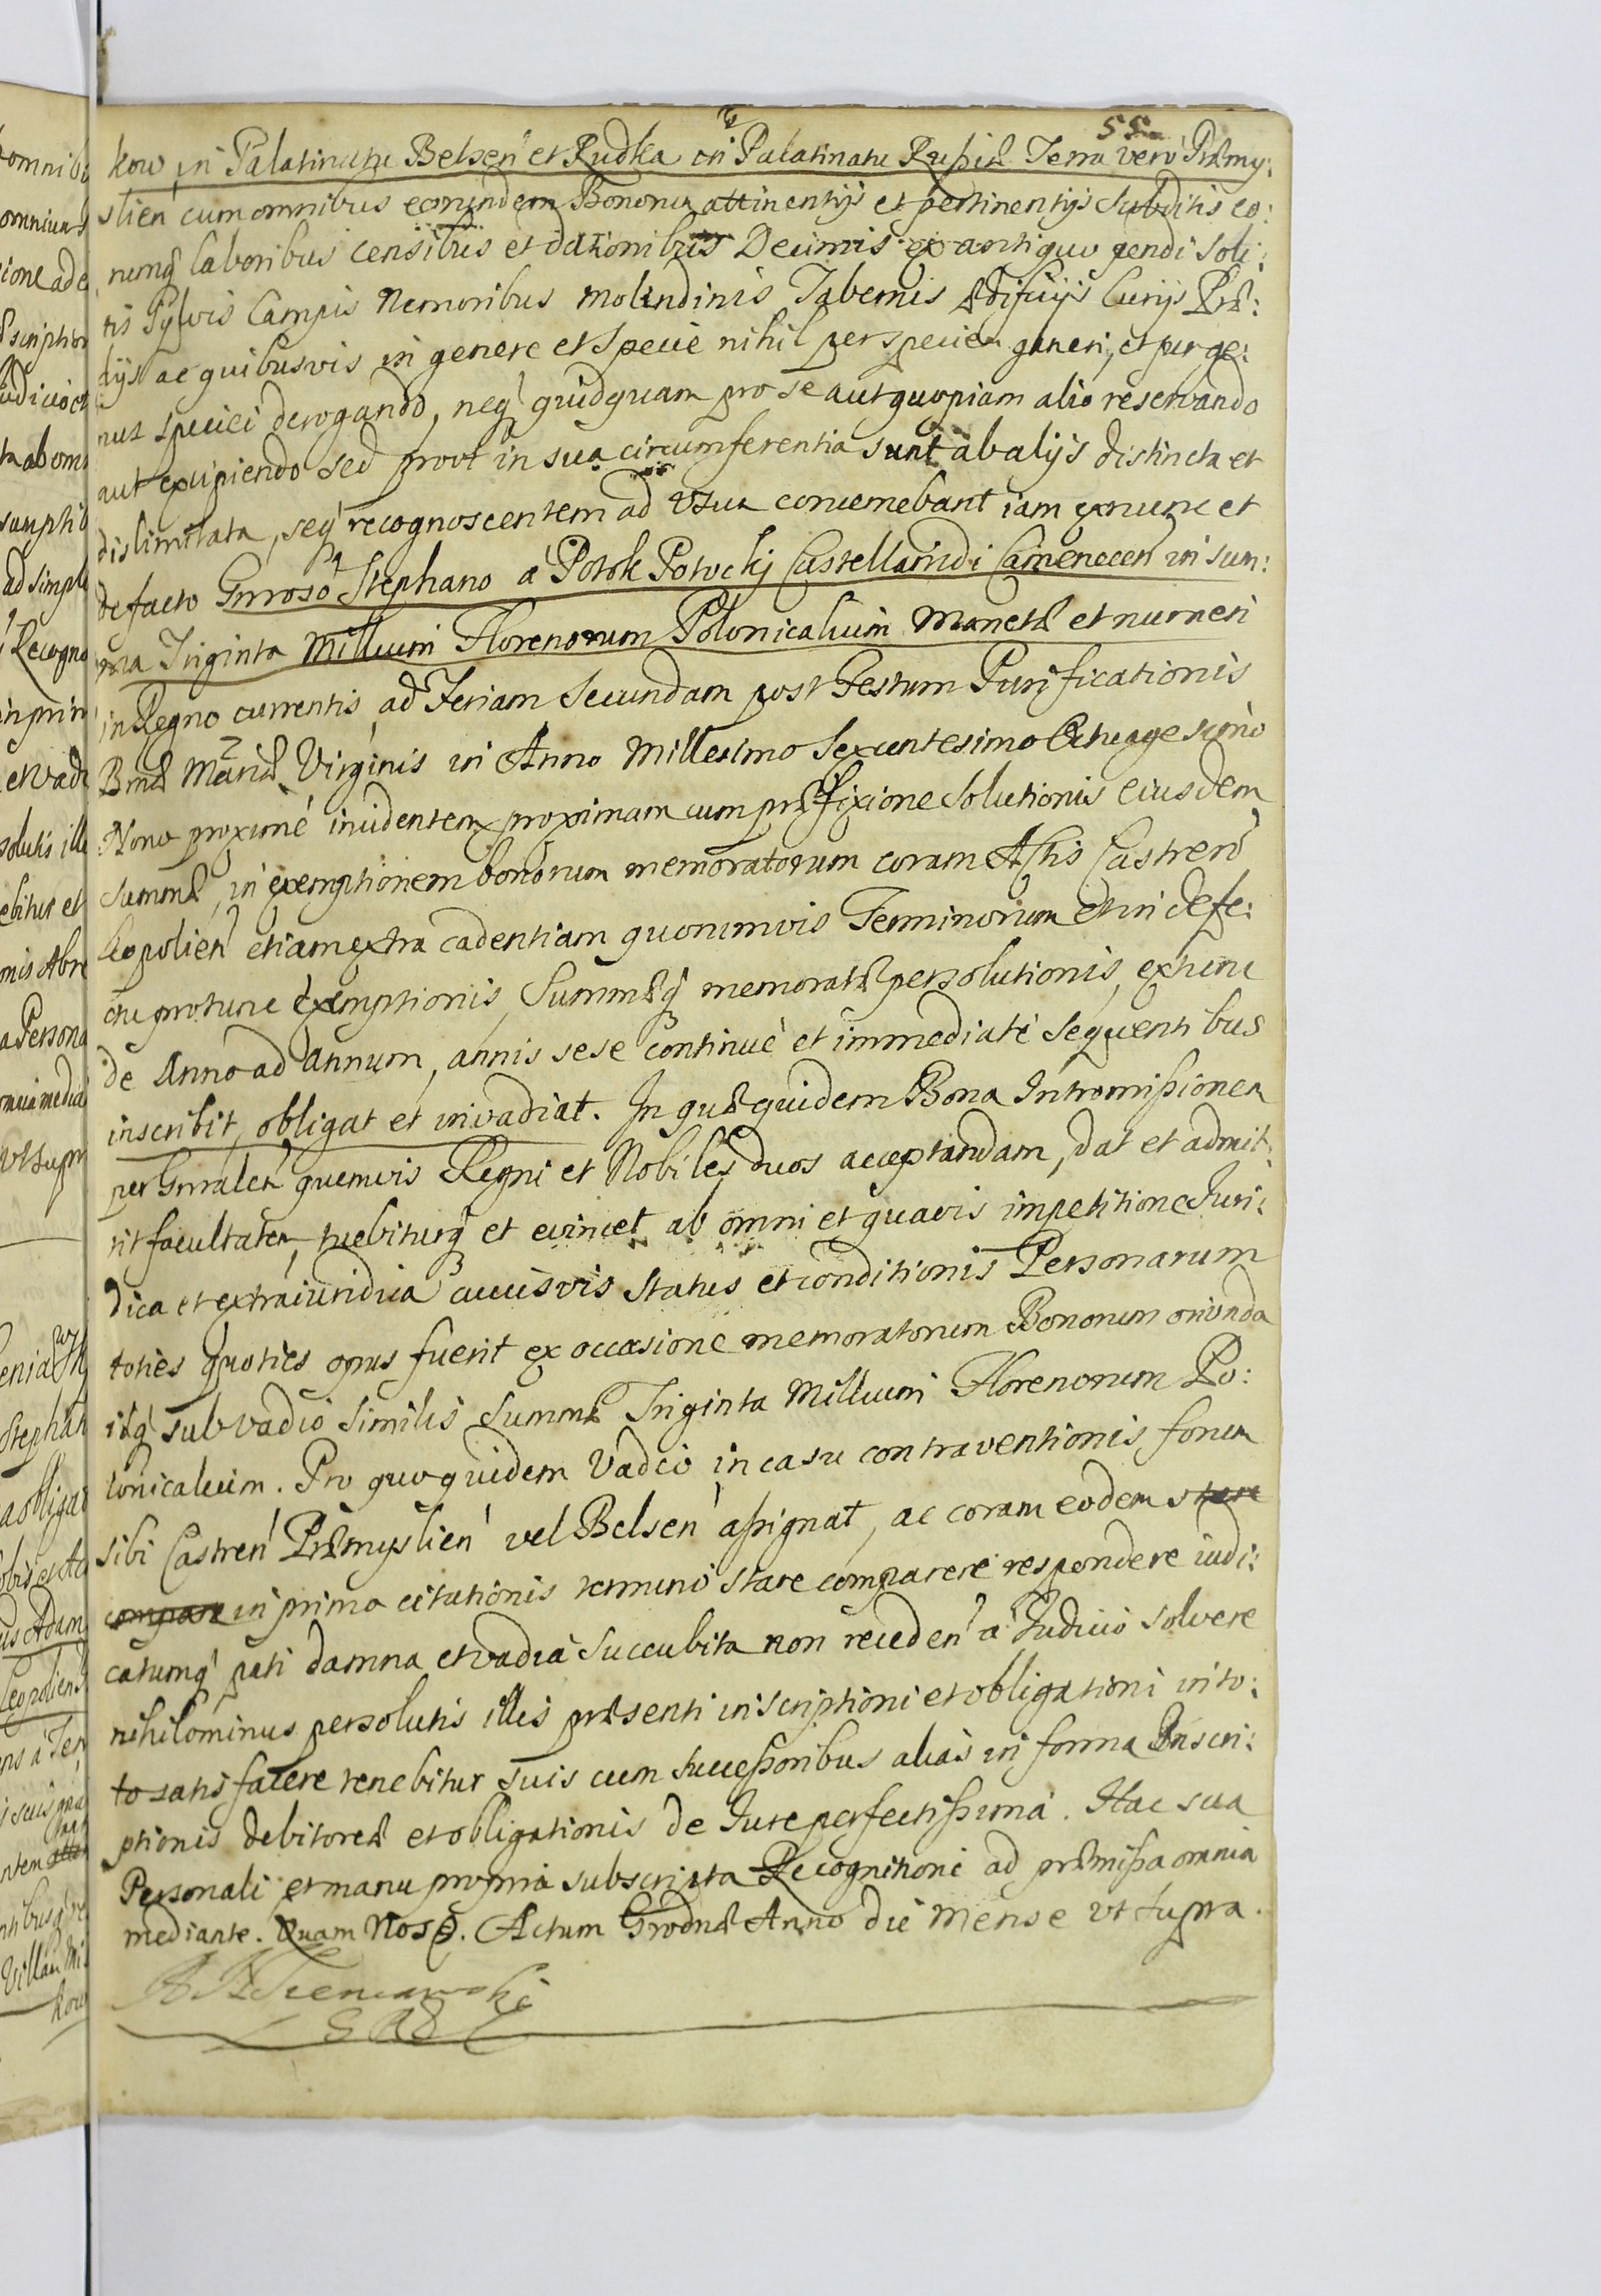 55
kow in Palatinatu Belsen et Rudka in Palatinatu Rußiæ Terra vero Præmy:
slien cum omnibus eorundem Bonorum attinentijs et pertinentijs Subditis eo:
rumq laboribus censibus et dationibus Decimis ex antiquo pendi soli:
tis Sylvis Campis Nemoribus Molendinis Tabernis Ædificijs Curijs Præ:
dijs ac quibusvis in genere et specie nihil per speciem generi, et per ge:
nus speciei derogando, neq quidquam pro se aut quopiam alio reservando
aut excipiendo sed prout in sua circumferentia sunt ab alijs distincta et
dislimitata, seq recognoscentem ad usum concernebant iam exnunc et
de facto Gnroso Stephano à Potok Potocki Castellanidi Camenecen in sum:
ma Triginta Millium Florenorum Polonicalium Monetæ et numeri
in Regno currentis ad Feriam Secundam post Festum Purificationis
Bmæ Mariæ Virginis in Anno Millesimo Sexcentesimo Octuagesimo
Nono proximè incidentem proximam cum præfixione Solutionis eiusdem
Summæ, in exemptionem bonorum memoratorum coram Actis Castren
Leopolien etiam extra cadentiam quorumvis Terminorum et in defe:
ctu protunc exemptionis, Summæq memoratæ persolutionis, extunc
de Anno ad Annum, annis sese continuè et immediatè sequentibus
inscribit, obligat et invadiat. In quæ quidem Bona Intromißionem
per Gnralem quemvis Regni et Nobiles duos acceptandam, dat et admit:
tit facultatem, tuebiturq et evincet ab omni et quavis impetitione Juri:
dica et extraiuridica cuiusvis status et conditionis Personarum
toties quoties opus fuerit ex occasione memoratorum Bonorum oriunda
idq sub vadio similis Summæ Triginta Millium Florenorum Po:
lonicalium. Pro quo quidem Vadio in casu contraventionis forum
sibi Castren Præmyslien vel Belsen aßignat, ac coram eodem stare
compare in primo citationis termino stare comparere respondere iudi:
catumq pati damna et vadia succubita non receden à Judicio solvere
nihilominus persolutis illis præsenti inscriptioni et obligationi in to:
to satisfacere tenebitur suis cum succeßoribus aliàs in forma Inscri:
ptionis debitoreæ et obligationis de Jure perfectißima. Hac sua
Personali et manu propria subscripta Recognitione ad præmißa omnia
mediante. Quam Nos. Actum Grodnæ Anno die Mense ut supra.